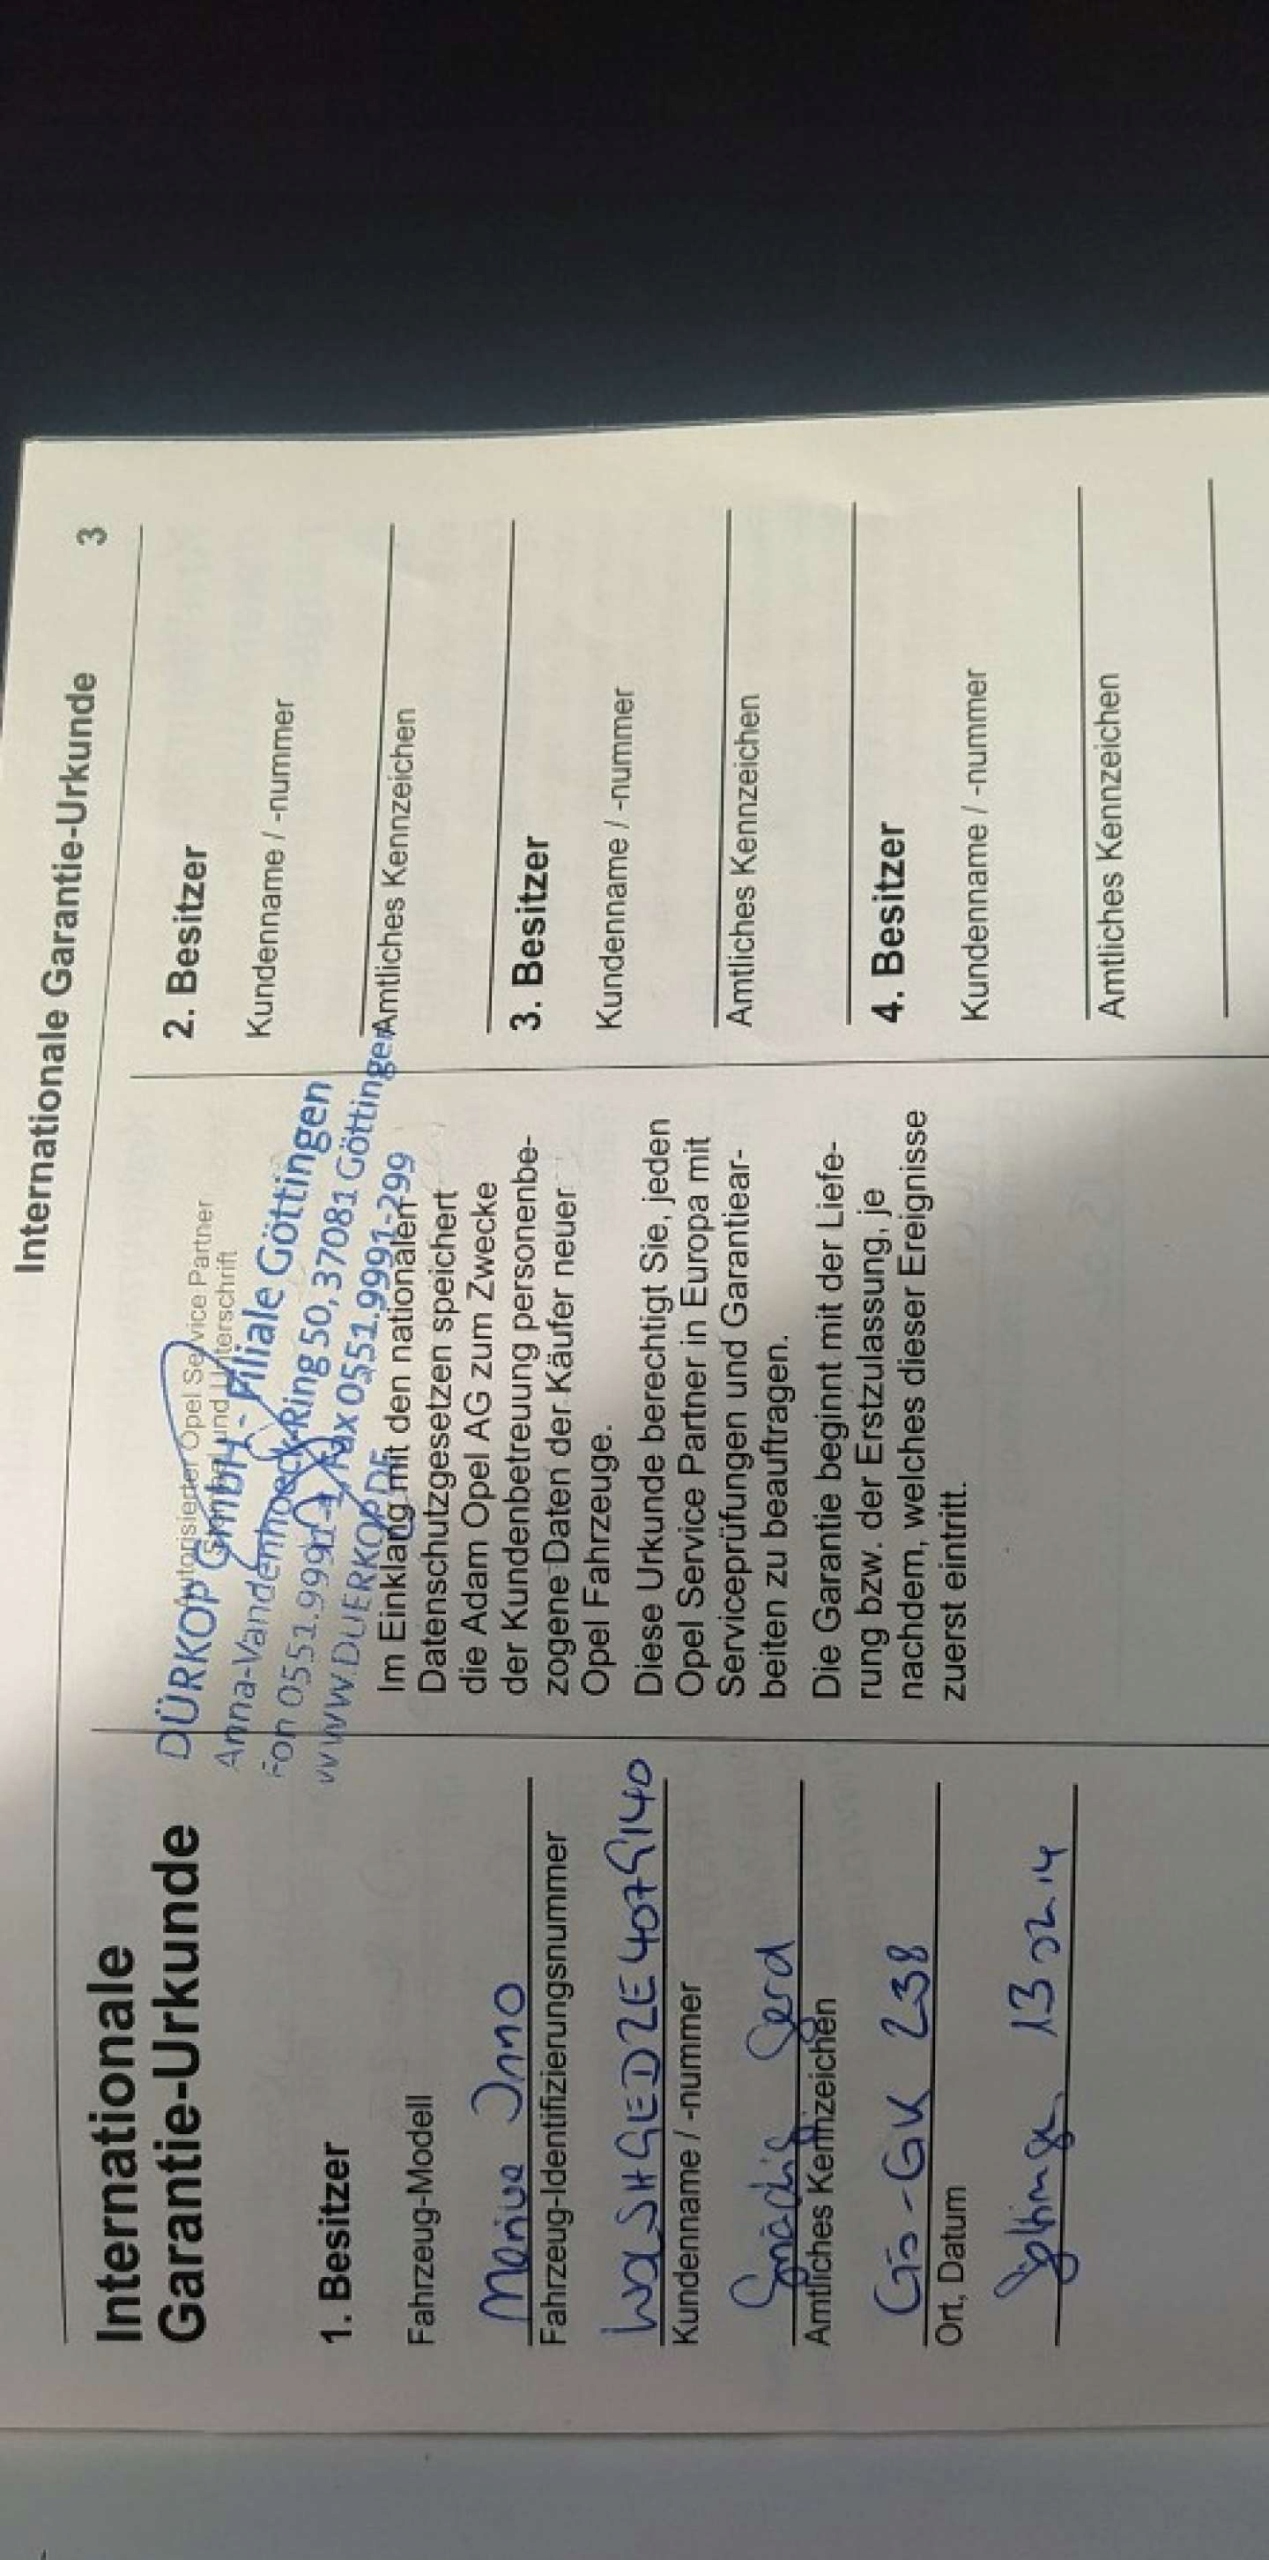 Internationale Garantie-Urkunde 3
Internationale
Garantie-Urkunde
1. Besitzer
Fahrzeug-Modell
Meriva Inno
Fahrzeug-Identifizierungsnummer
Kundenname / -nummer
Gerd
Amtliches Kennzeichen
Gö-GK 238
Ort, Datum
Göttingen, 13 02 14
Autorisierter Opel Service Partner
Stempel und Unterschrift
DÜRKOP GmbH - Filiale Göttingen
Anna-Vandenhoeck-Ring 50, 37081 Göttingen
Fon 0551.9991-, Fax 0551.9991-299
www.DUERKOP.DE
Im Einklang mit den nationalen
Datenschutzgesetzen speichert
die Adam Opel AG zum Zwecke
der Kundenbetreuung personenbe-
zogene Daten der Käufer neuer
Opel Fahrzeuge.
Diese Urkunde berechtigt Sie, jeden
Opel Service Partner in Europa mit
Serviceprüfungen und Garantiear-
beiten zu beauftragen.
Die Garantie beginnt mit der Liefe-
rung bzw. der Erstzulassung, je
nachdem, welches dieser Ereignisse
zuerst eintritt.
2. Besitzer
Kundenname / -nummer
Amtliches Kennzeichen
3. Besitzer
Kundenname / -nummer
Amtliches Kennzeichen
4. Besitzer
Kundenname / -nummer
Amtliches Kennzeichen